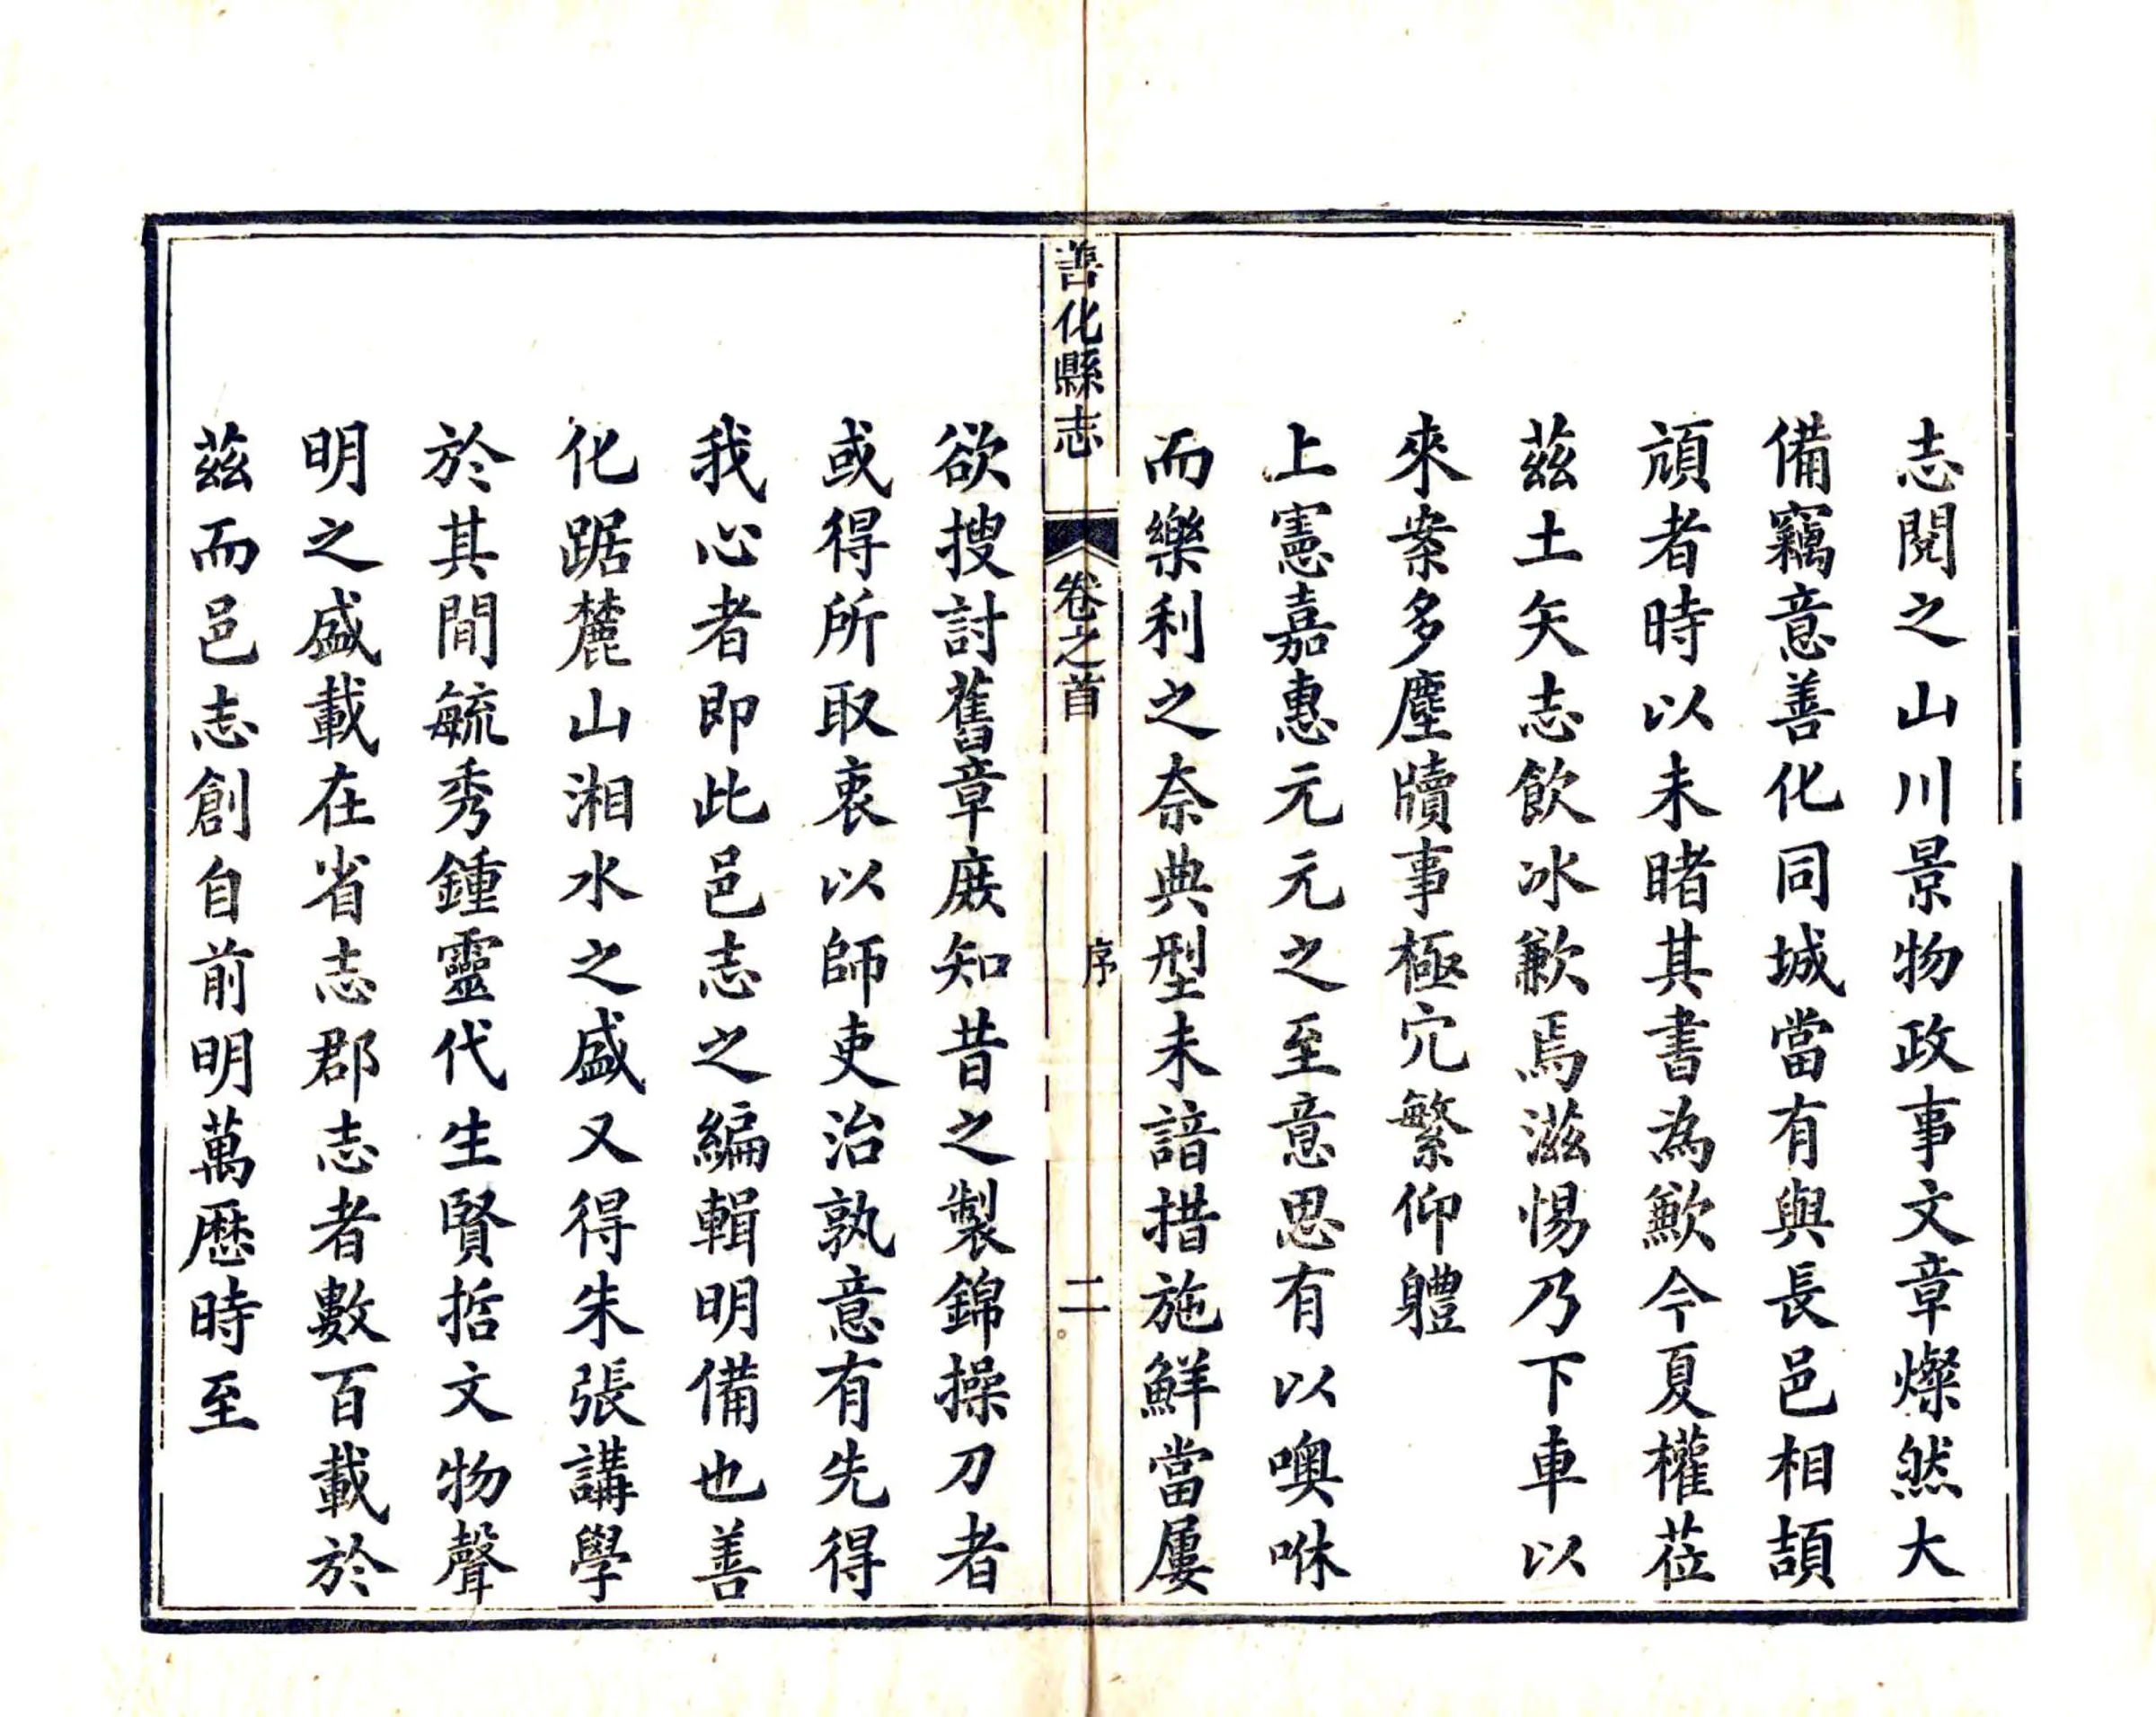 志閱之山川景物政事文章燦然大
備竊意善化同城當有與長邑相頡
頏者時以未睹其書為歉今夏權莅
茲土矢志飲冰歉焉滋惕乃下車以
來案多塵牘事極宂繁仰軆
上憲嘉惠元元之至意思有以噢咻
而樂利之奈典型未諳措施鮮當屢
善化縣志
卷之首
序
二
欲搜討舊章庻知昔之製錦操刀者
或得所取衷以師吏治孰意有先得
我心者即此邑志之編輯明備也善
化踞麓山湘水之盛又得朱張講學
於其間毓秀鍾靈代生賢哲文物聲
明之盛載在省志郡志者數百載於
茲而邑志創自前明萬歷時至